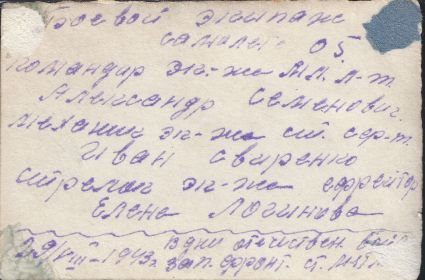 Боевой экипаж
самолета 05.
командир эк-жа мл. л-т.
Александр Семенович.
механик эк-жа ст. сер-т.
Иван Свиренко
стрелок эк-жа ефрейтор
Елена Логинова
29/VIII-1943г. В дни отечествен. войны
зап. фронт ст.